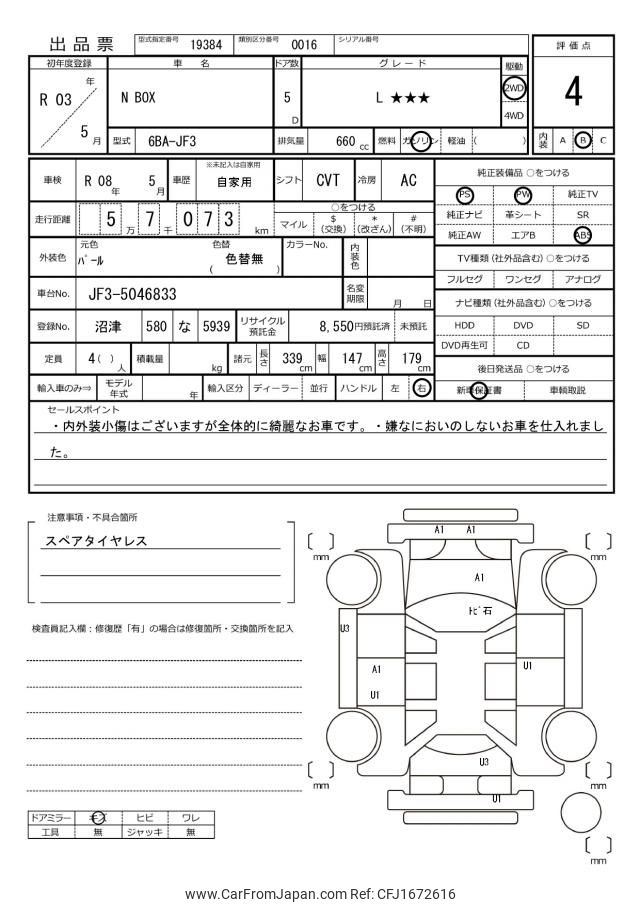 出品票 型式指定番号 19384 類別区分番号 0016 シリアル番号
評価点
4
内装 A B C
初年度登録 車名 ドア数 グレード 駆動
R 03 年 5 月 N BOX 5 D L ★★★ 2WD 4WD
型式 6BA-JF3 排気量 660 cc 燃料 ガソリン 軽油 ( )
車検 R 08 年 5 月 車歴 ※未記入は自家用 自家用 シフト CVT 冷房 AC
走行距離 5 万 7 千 0 7 3 km ○をつける
マイル $ (交換) * (改ざん) # (不明)
外装色 元色 パール 色替 ( 色替無 ) カラーNo. 内装色
車台No. JF3-5046833 名変期限 月 日
登録No. 沼津 580 な 5939 リサイクル預託金 8,550円預託済 未預託
定員 4( ) 人 積載量 kg 諸元 長さ 339 cm 幅 147 cm 高さ 179 cm
輸入車のみ⇒ モデル年式 年 輸入区分 ディーラー 並行 ハンドル 左 右
純正装備品 ○をつける
PS PW 純正TV
純正ナビ 革シート SR
純正AW エアB ABS
TV種類 (社外品含む) ○をつける
フルセグ ワンセグ アナログ
ナビ種類 (社外品含む) ○をつける
HDD DVD SD
DVD再生可 CD
後日発送品 ○をつける
新車保証書 車輌取説
セールスポイント
・内外装小傷はございますが全体的に綺麗なお車です。・嫌なにおいのしないお車を仕入れまし
た。
注意事項・不具合箇所
スペアタイヤレス
検査員記入欄：修復歴「有」の場合は修復箇所・交換箇所を記入
ドアミラー キズ ヒビ ワレ
工具 無 ジャッキ 無
A1 A1
mm mm
A1
トビ石
U3
U1
A1
U1
U3
mm mm
U1
mm
www.CarFromJapan.com Ref: CFJ1672616